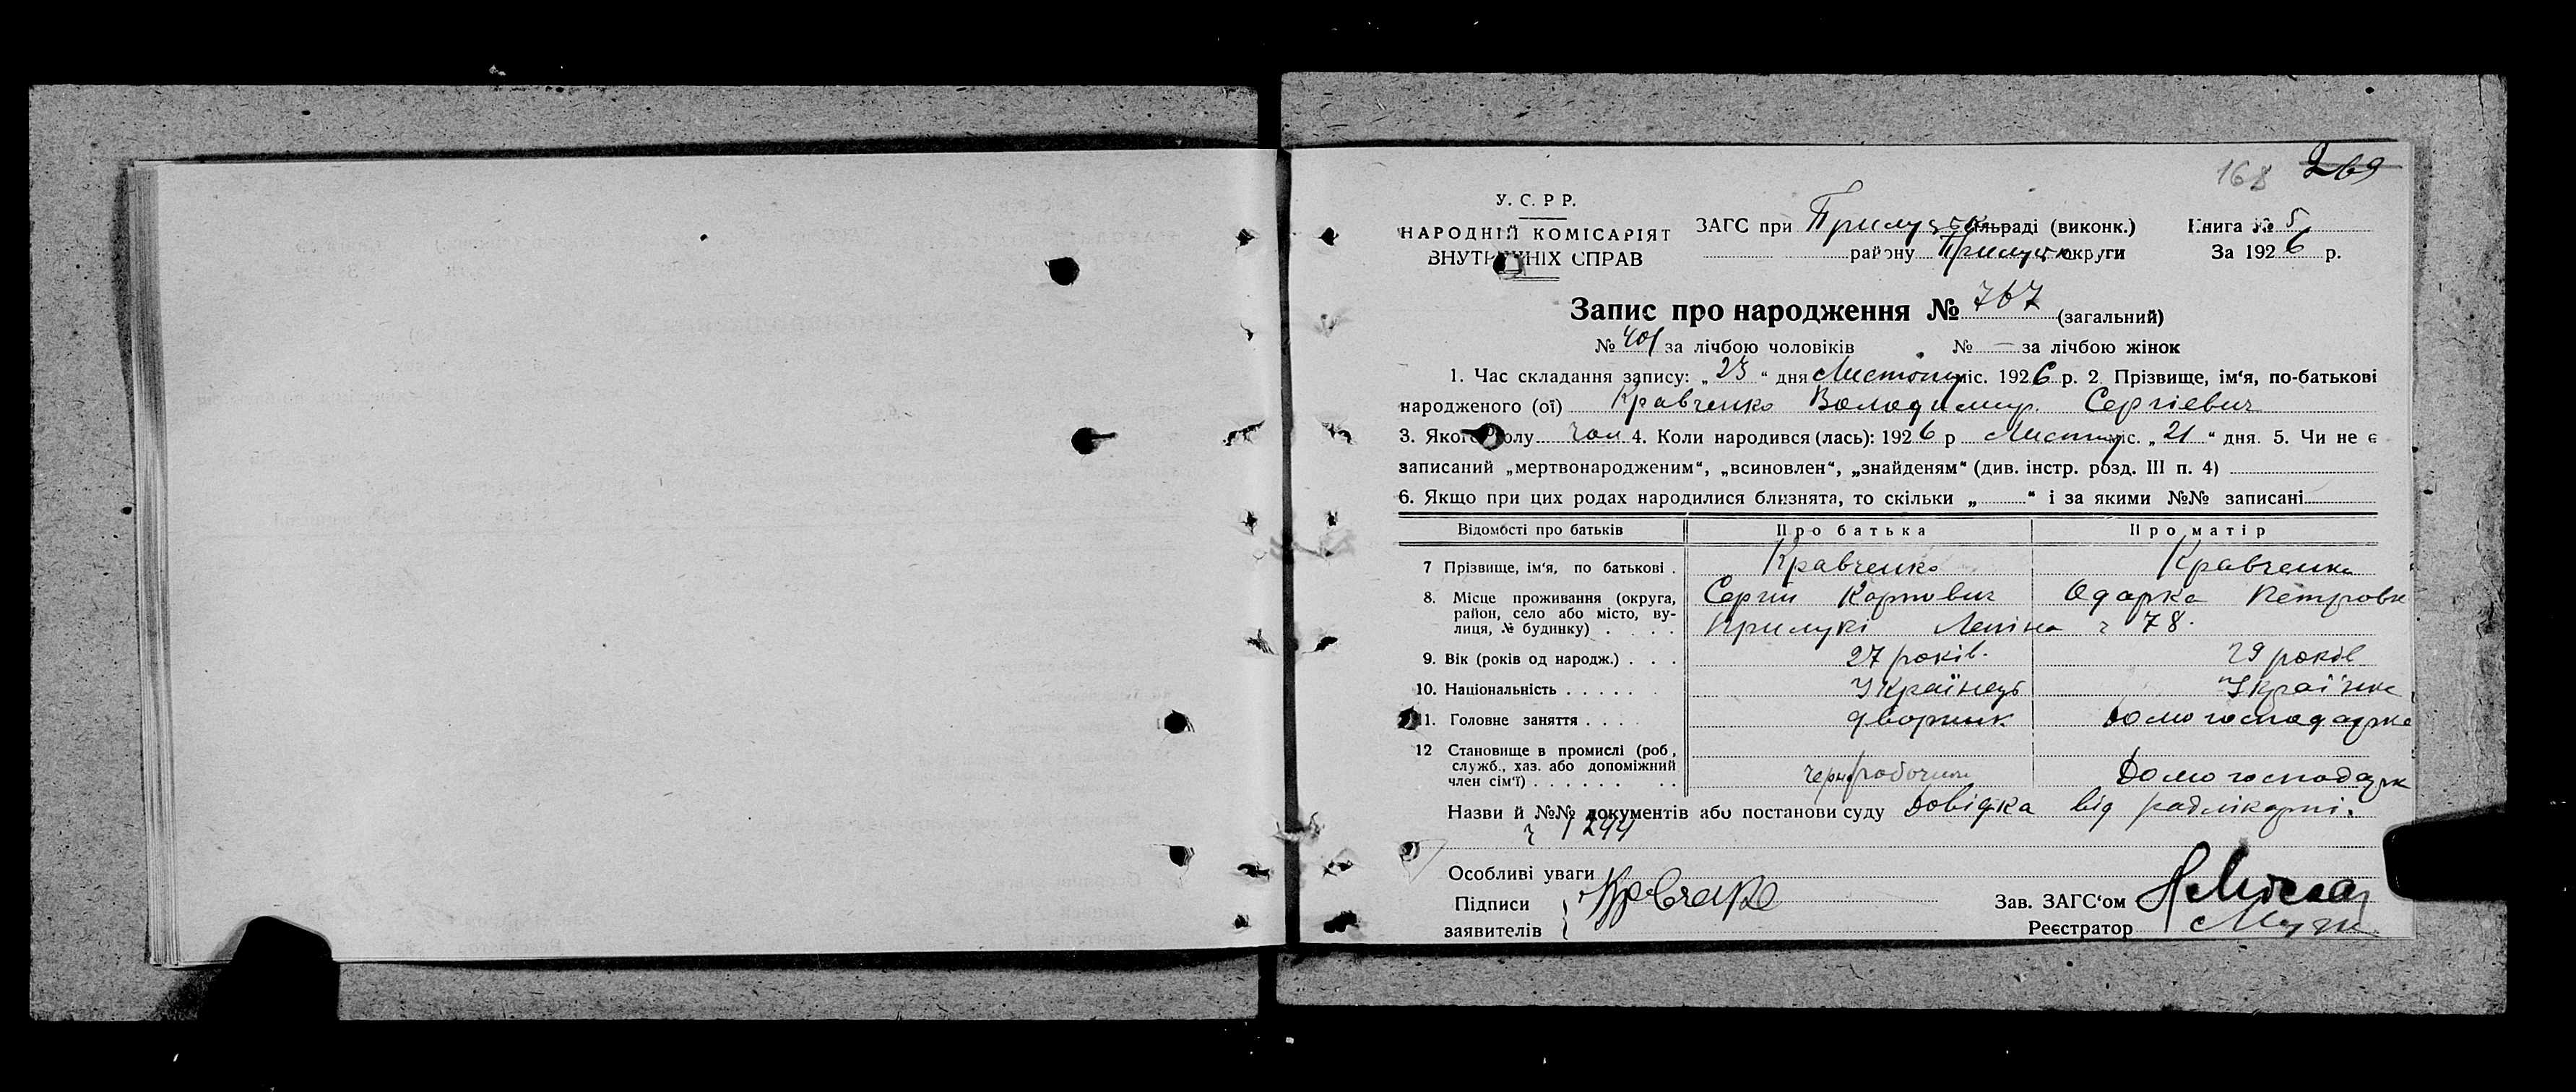 168 269
У. С. Р Р.
НАРОДНІЙ КОМІСАРІЯТ
ВНУТРІШНІХ СПРАВ
ЗАГС при Прилуцьк сільраді (виконк.) Книга № 5
району Прилуцьк округи За 1926 р.
Запис про народження № 767 (загальний)
№ 401 за лічбою чоловіків № — за лічбою жінок
1. Час складання запису: „23“ дня Листопад міс. 1926 р. 2 Прізвище, ім‘я, по-батькові
народженого (ої) Кравченко Володимир Сергієвич
3. Якого полу чол 4. Коли народився (лась): 1926 р Листоп міс. „21“ дня. 5. Чи не є
записаний „мертвонародженим“, „всиновлен“, „знайденям“ (див. інстр. розд. III п. 4)
6. Якщо при цих родах народилися близнята, то скільки „ “ і за якими №№ записані
Відомості про батьків Про батька Про матір
7 Прізвище, ім‘я, по батькові . Кравченко Кравченко
8. Місце проживання (округа, район, село або місто, вулиця, № будинку) . . . . Сергій Карпович Одарка Петровн
Прилукі Леніна ч 78.
9. Вік (років од народж.) . . . 27 років. 29 років
10. Національність . . . . . Українець Українка
11. Головне заняття . . . . дворник Домогосподарка
12 Становище в промислі (роб, служб., хаз. або допоміжний член сім‘ї) . . . . . . . . чернорабочий Домогосподарк
Назви й №№ документів або постанови суду Довідка від радлікарні.
ч 1244
Особливі уваги
Підписи Кравченко Зав. ЗАГС‘ом
заявителів Реєстратор